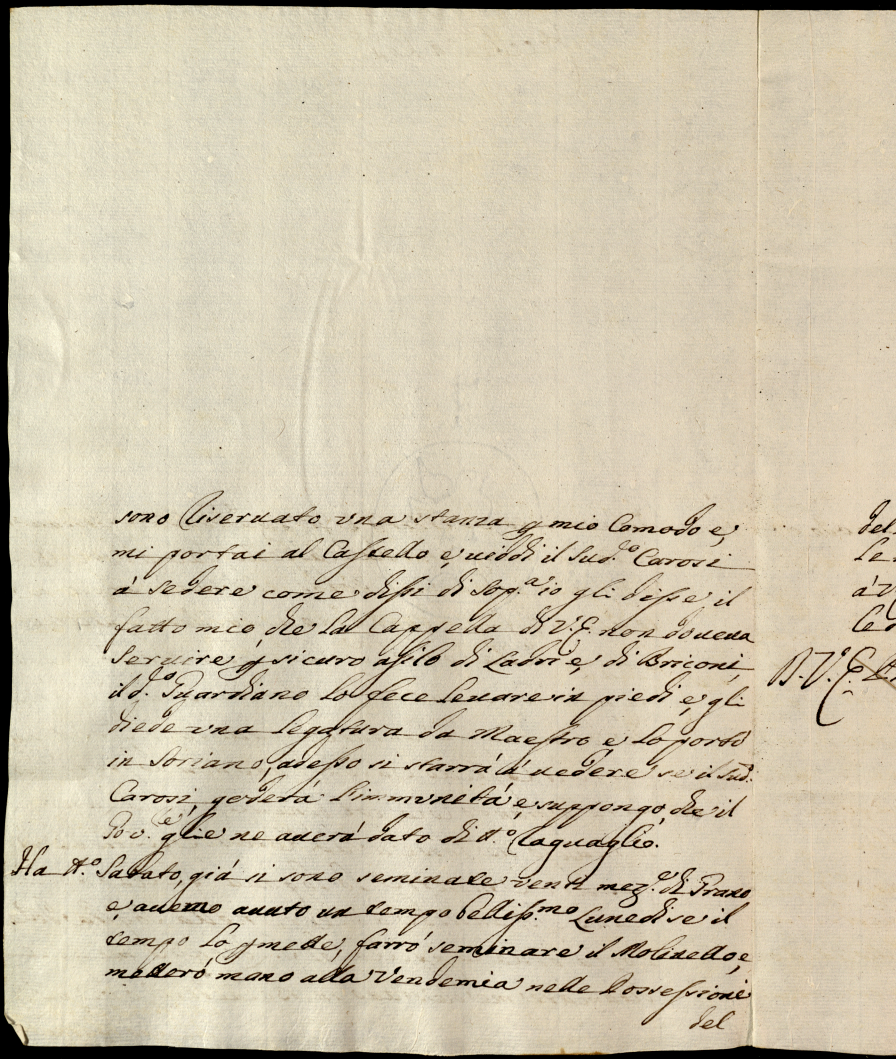 sono riservato vna stanza p mio Comodo e,
mi portai al Castello e, ueddi il Sud.º Carosi
à sedere come dissi di Sop.ª io gli disse il
fatto mio, che la Cappella di V.E. non doueua
Seruire p sicuro asilo di Ladri e, di Briconi,
il d.º Guardiano lo fece leuare in piedi e, gli
diede vna legatura da Maestro, e lo portò
in Soriano, adesso si starrà à uedere se il Sud.
Carosi, goderà l'immunità, e, suppongo, che il
Gov.e glie ne auerà dato di tt.º raguaglio.
Ha tt.º Sabato, già si sono seminate venti mez.e di Grano
e, auemo auuto un tempo belliss.mo Lunedi se il
tempo lo pmette, farrò seminare il Molinello, e,
metterò mano alla Vendemia nelle Possessioni
del
del
Le
à V
B. V.ª E.